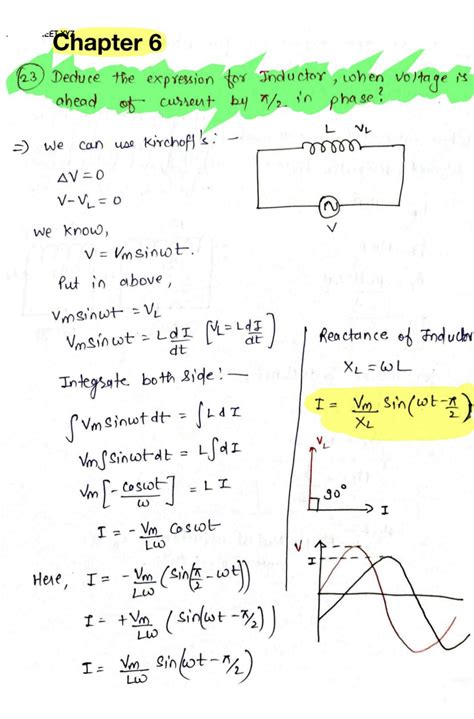 Chapter 6
23) Deduce the expression for Inductor, when voltage is
ahead of current by π/2 in phase?
⇒ We can use Kirchoff's: -
L VL
V
ΔV = 0
V-VL = 0
We know,
V = Vm sinωt.
Put in above,
Vm sinωt = VL
Vm sinωt = L dI/dt [VL = L dI/dt]
Integrate both side: —
∫ Vm sinωt dt = ∫ L dI
Vm ∫ sinωt dt = L ∫ dI
Vm [-cosωt/ω] = L I
I = - Vm/Lω cosωt
Here, I = - Vm/Lω (sin(π/2 - ωt))
I = + Vm/Lω (sin(ωt - π/2))
I = Vm/Lω sin(ωt - π/2)
Reactance of Inductor
XL = ωL
I = Vm/XL sin(ωt - π/2)
VL
90°
I
V
I